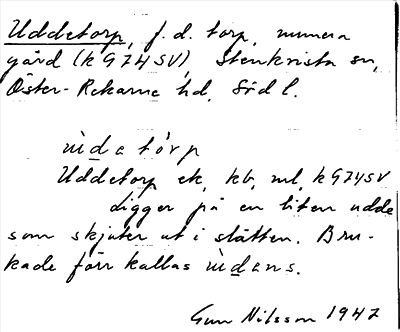 Uddetorp, f.d. torp, numera
gård (k G74SV), Stenkvista sn,
Öster-Rekarne hd, Södl.
ùdetórp
Uddetorp ek, kb, ml, k G74SV
Ligger på en liten udde
som skjuter ut i slätten. Bru-
kade förr kallas ùdens.
Gun Nilsson 1947